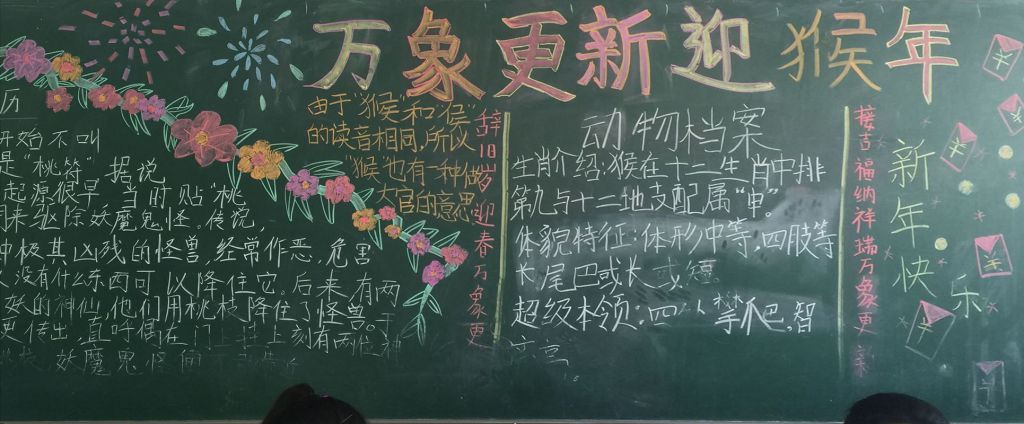 万象更新迎猴年
历
开始不叫
是"桃符"据说
起源很早 当时贴桃
来驱除妖魔鬼怪。传说,
极其凶残的怪兽,经常作恶,危害
没有什么东西可以降住它。后来有两
妖的神仙,他们用桃枝降住了怪兽。于
传出,直
上刻有两位神
妖魔鬼怪
由于"猴"和"侯"
的读音相同,所以
"猴"也有一种做
大官的意思
辞旧岁迎春万象更
动物档案
生肖介绍:猴在十二生肖中排
第九与十二地支配属"申"。
体貌特征:体形中等,四肢等
长,尾巴或长或短
超级本领:四 攀爬,智
高。
接吉福纳祥瑞万象更新
新年快乐